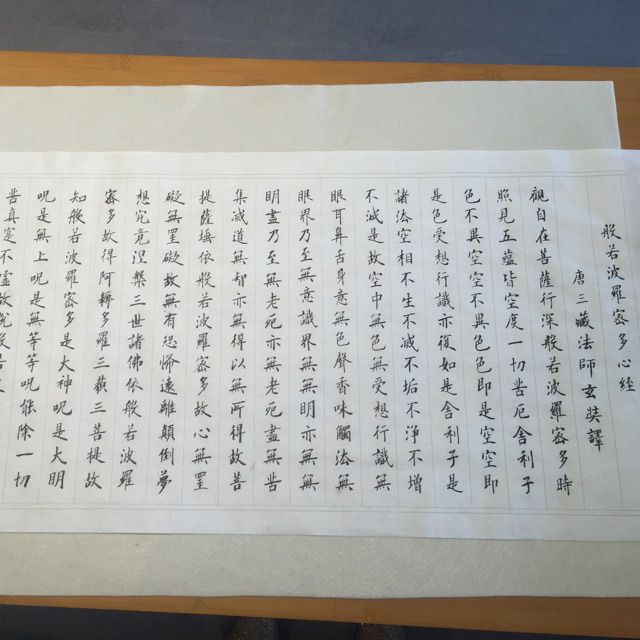 般若波羅密多心經
唐三藏法師玄奘譯
觀自在菩薩行深般若波羅密多時
照見五蘊皆空度一切苦厄舍利子
色不異空空不異色色即是空空即
是色受想行識亦復如是舍利子是
諸法空相不生不滅不垢不淨不增
不減是故空中無色無受想行識無
眼耳鼻舌身意無色聲香味觸法無
眼界乃至無意識界無無明亦無無
明盡乃至無老死亦無老死盡無苦
集滅道無智亦無得以無所得故菩
提薩埵依般若波羅密多故心無罣
礙無罣礙故無有恐怖遠離顛倒夢
想究竟涅槃三世諸佛依般若波羅
密多故得阿耨多羅三藐三菩提故
知般若波羅密多是大神呪是大明
呪是無上呪是無等等呪能除一切
苦真實不虛故說般若